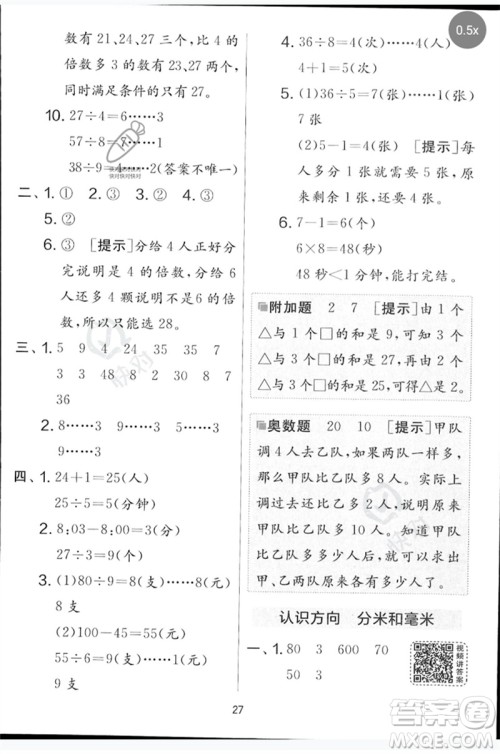 0.5x
数有 21,24,27 三个，比 4 的
倍数多 3 的数有 23,27,所以
同时满足条件的只有 27。
10. 27÷4=6……3
57÷8=7……1
38÷9=4……2(答案不唯一)
二、1. ① 2. ③ 3. ① 4. ①
5. ②
6. ③ [提示]分给 4 人正好分
完说明是 4 的倍数，分给 6
人多 4 颗说明比 6 的倍数
多 4,所以选 28。
三、1. 5 9 4 24 35 35 7
3 3 48 2 9 8 7
36
2. 8……3 9……5 9……3
9……3
四、1. 24+1=25(人)
25÷5=5(分钟)
2. 8:03-8:00=3(分)
27÷3=9(个)
3. (1)80÷9=8(支)……8(元)
8 支
(2)100-45=55(元)
55÷6=9(支)……1(元)
9 支
4. 36÷8=4(次)……4(人)
4+1=5(次)
5. (1)36÷5=7(张)……1(张)
7 张
(2)5-1=4(张) [提示]每
人多分 1 张，就需要再多
5 张，原来多 1 张，所以还
需 4 张。
6. 7-1=6(下)
6×8=48(秒)
48 秒<1 分钟，能打完结。
附加题 2 7 [提示]由 1 个
△与 1 个□的和是 9,可知 3 个
△与 3 个□的和是 27。再由 2 个
△与 3 个□的和是 25,可以得出
1 个△是 2。
奥数题 20 10 [提示]甲队
调 4 人去乙队后，如果两队一样多，
那么甲队比乙队多 8 人。实际上，
甲队还比乙队多 2 人，说明原来
甲队比乙队多 10 人。知道甲队
和乙队的总人数，又知道原来甲
队比乙队多多少人，就可以求出
甲、乙两队原来各有多少人了。
认识方向 分米和毫米
一、1. 80 3 600 70
50 3
视频讲答案
27
答案圈
MXQE.COM